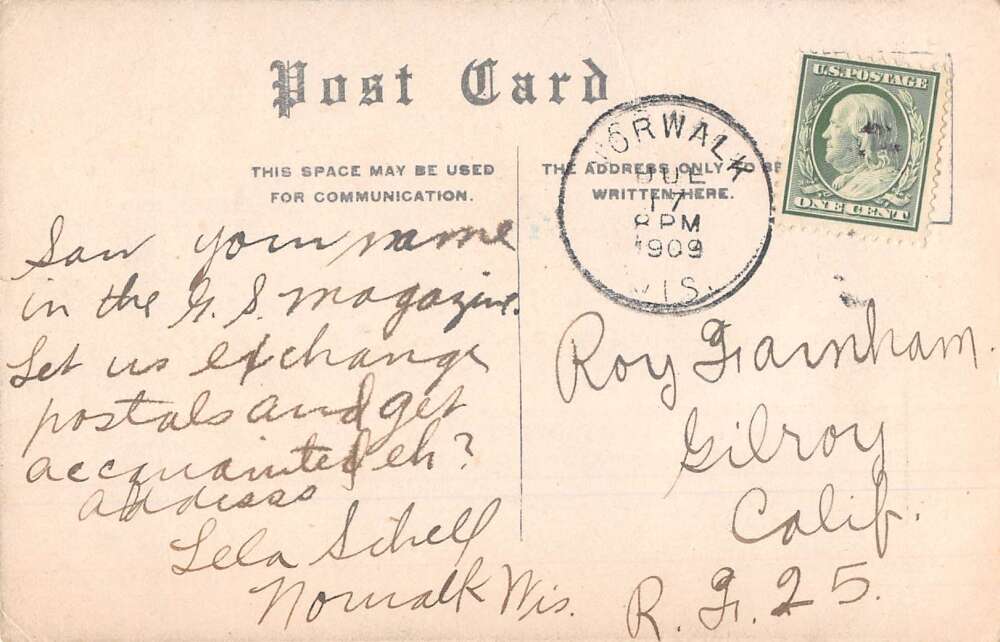 Post Card
THIS SPACE MAY BE USED
FOR COMMUNICATION.
THE ADDRESS ONLY TO BE
WRITTEN HERE.
NORWALK
JUL
17
8 PM
1909
WIS.
U.S. POSTAGE
ONE CENT
Saw your name
in the G. S. magazine.
Let us exchange
postals and get
accquainted eh?
address
Lela Schell
Norwalk Wis.
Roy Farnham.
Gilroy
Calif.
R. F. 25.